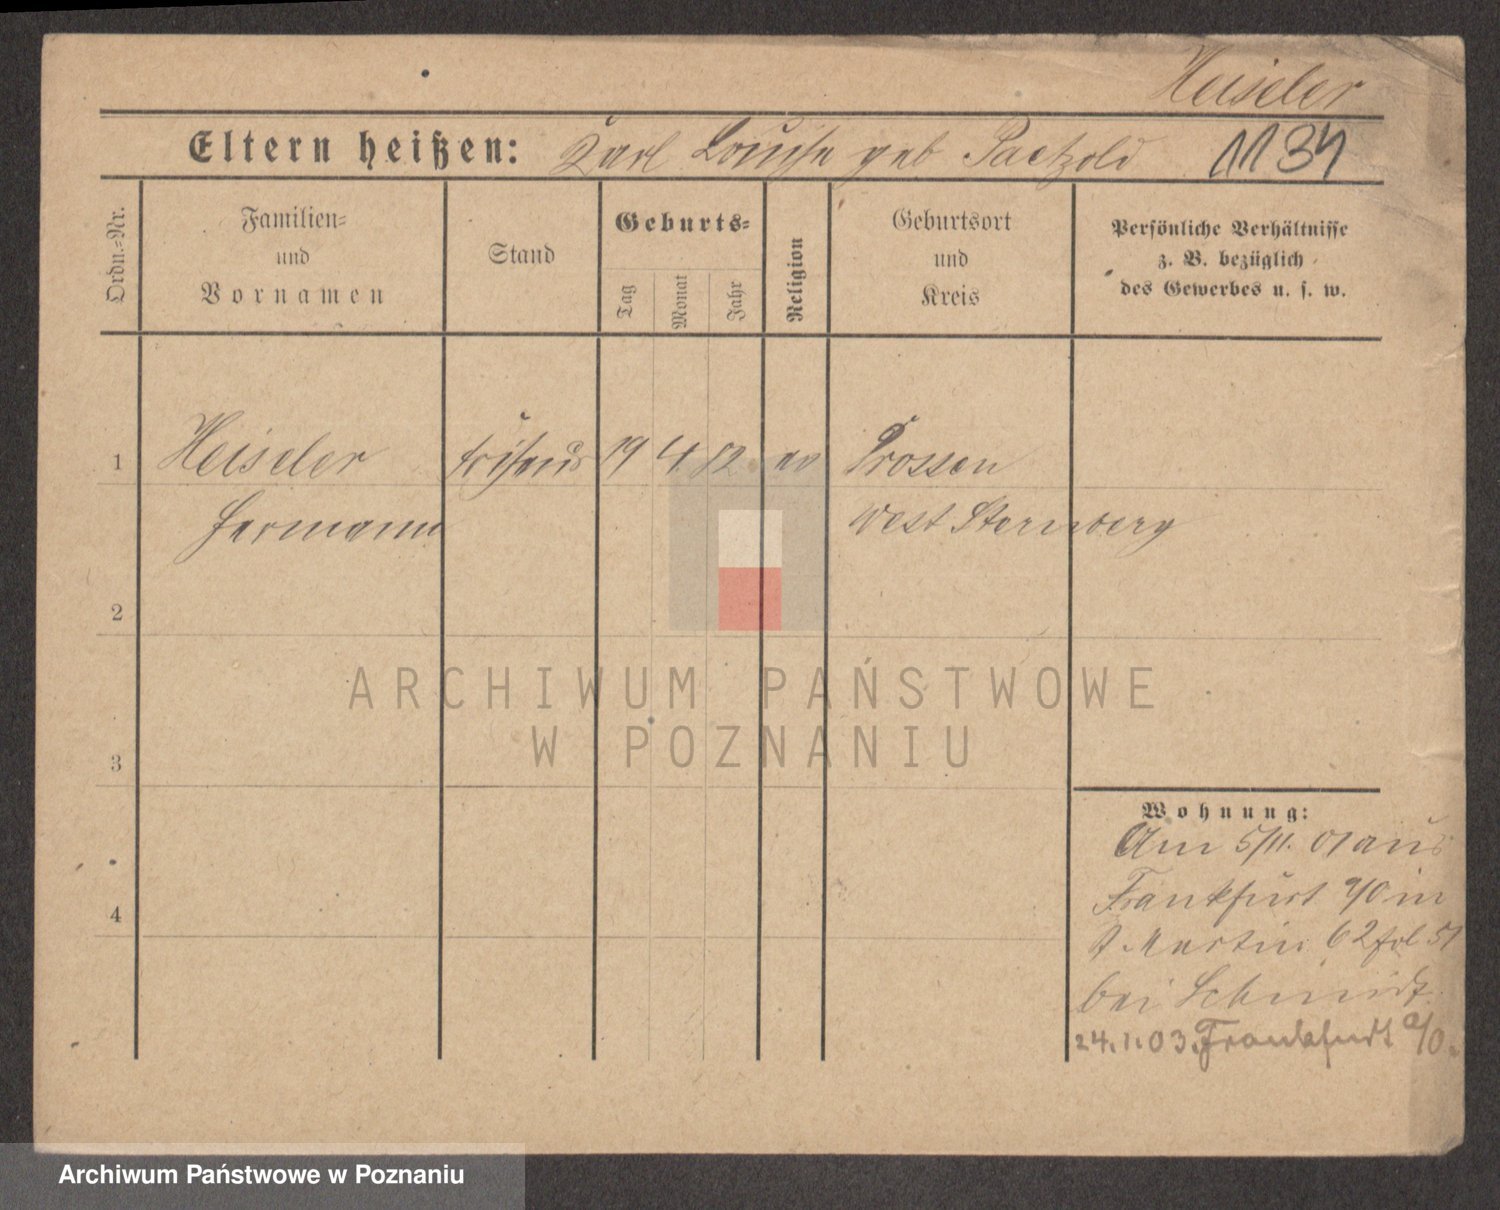 Heiseler
Eltern heißen: Karl Louise geb Paetzold 1134
Ordn.-Nr.
Familien-
und
Vornamen
Stand
Geburts-
Tag
Monat
Jahr
Religion
Geburtsort
und
Kreis
Persönliche Verhältnisse
z. B. bezüglich
des Gewerbes u. s. w.
1 Heiseler 19 4 82 ev
Hermann West Sternberg
2
3
4
ARCHIWUM PAŃSTWOWE
W POZNANIU
Wohnung:
Am 5/11. 01 aus
Frankfurt a/O in
Martin 62 fol 51
bei Schmidt
24.1.03. Frankfurt a/O.
Archiwum Państwowe w Poznaniu